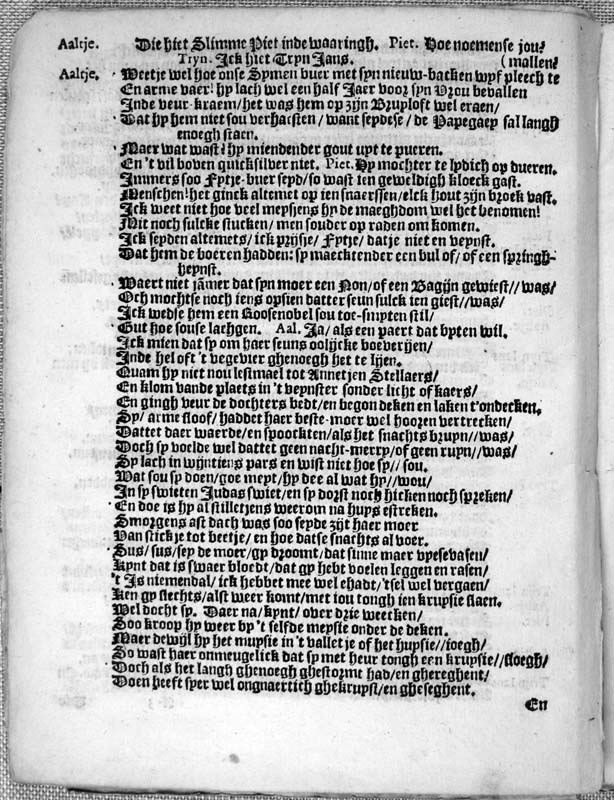 Aaltje. Die hiet Slimme Piet inde waaringh. Piet. Hoe noemense jou?
Tryn. Ick hiet Tryn Jans. (mallen?
Aaltje. Weetje wel hoe onse Symen buer met syn nieuw-backen wyf pleech te
En arme vaer! hy lach wel een half Jaer voor syn Vrou bevallen
Inde veur-kraem/het was hem op zijn Bruyloft wel eraen/
Dat hy hem niet sou verhaesten / want seydese / de Papegaey sal langh
enoegh staen.
Maer wat wast? hy miendender gout uyt te pueren.
En 't vil boven quicksilver niet. Piet. Hy mochter te lydich op dueren.
Immers soo Fytje-buer seyd/so wast ien geweldigh kloeck gast.
Menschen! het ginck altemet op ien snaerssen/elck hout zijn broek vast.
Ick weet niet hoe veel meysjens hy de maeghdom wel het benomen!
Mit noch sulcke stucken/ men souder op raden om komen.
Ick seyden altemets/ ick prijsje/ Fytje/ datje niet en veynst.
Dat hem de boeren hadden: sy maecktender een bul of/ of een springh-
heynst.
Waert niet jammer dat syn moer een Non/of een Bagijn gewiest//was/
Och mochtse noch iens opsien datter seun sulck ien giest//was/
Ick wedse hem een Roosenobel sou toe-smyten stil/
Gut hoe souse lachgen. Aal. Ja/ als een paert dat byten wil.
Ick mien dat sy om haer seuns oolijcke boeveryen/
Inde hel oft 't vegevier ghenoegh het te lyen.
Quam hy niet nou lestmael tot Annetjen Stellaers/
En klom vande plaets in't veynster sonder licht of kaers/
En gingh veur de dochters bedt/en begon deken en laken t'ondecken.
Sy/ arme sloof/ haddet haer beste-moer wel hooren vertrecken/
Dattet daer waerde/en spoockten/als het snachts bruyn//was/
Doch sy voelde wel dattet geen nacht-merry/of geen ruyn//was/
Sy lach in wijntiens pars en wist niet hoe sy// sou.
Wat sou sy doen/goe meyt/hy dee al wat hy//wou/
In sy swieten Judas swiet/en sy dorst noch hicken noch spreken/
En doe is hy al stilletjens weerom na huys estreken.
Smorgens ast dach was soo seyde zijt haer moer
Van stick je tot beetje/ en hoe datse snachts al voer.
Sus/ sus/sey de moer/gy droomt/dat sinne maer vyesevasen/
Kynt dat is swaer bloedt/dat gy hebt voelen leggen en rasen/
't Is niemendal/ick hebbet mee wel ehadt/'tsel wel vergaen/
Ken gy slechts/alst weer komt/met iou tongh ien kruysie slaen.
Wel docht sy. Daer na/kynt/ over drie weecken/
Soo kroop hy weer by 't selfde meysie onder de deken.
Maer dewijl hy het muysie in't vallet je of het huysie//ioegh/
So wast haer onmeugelick dat sy met heur tongh een kruysie//sloegh/
Doch als het langh ghenoegh ghestormt had/en ghereghent/
Doen heeft sper wel ongnaertich ghekruyst/en gheseghent.
En